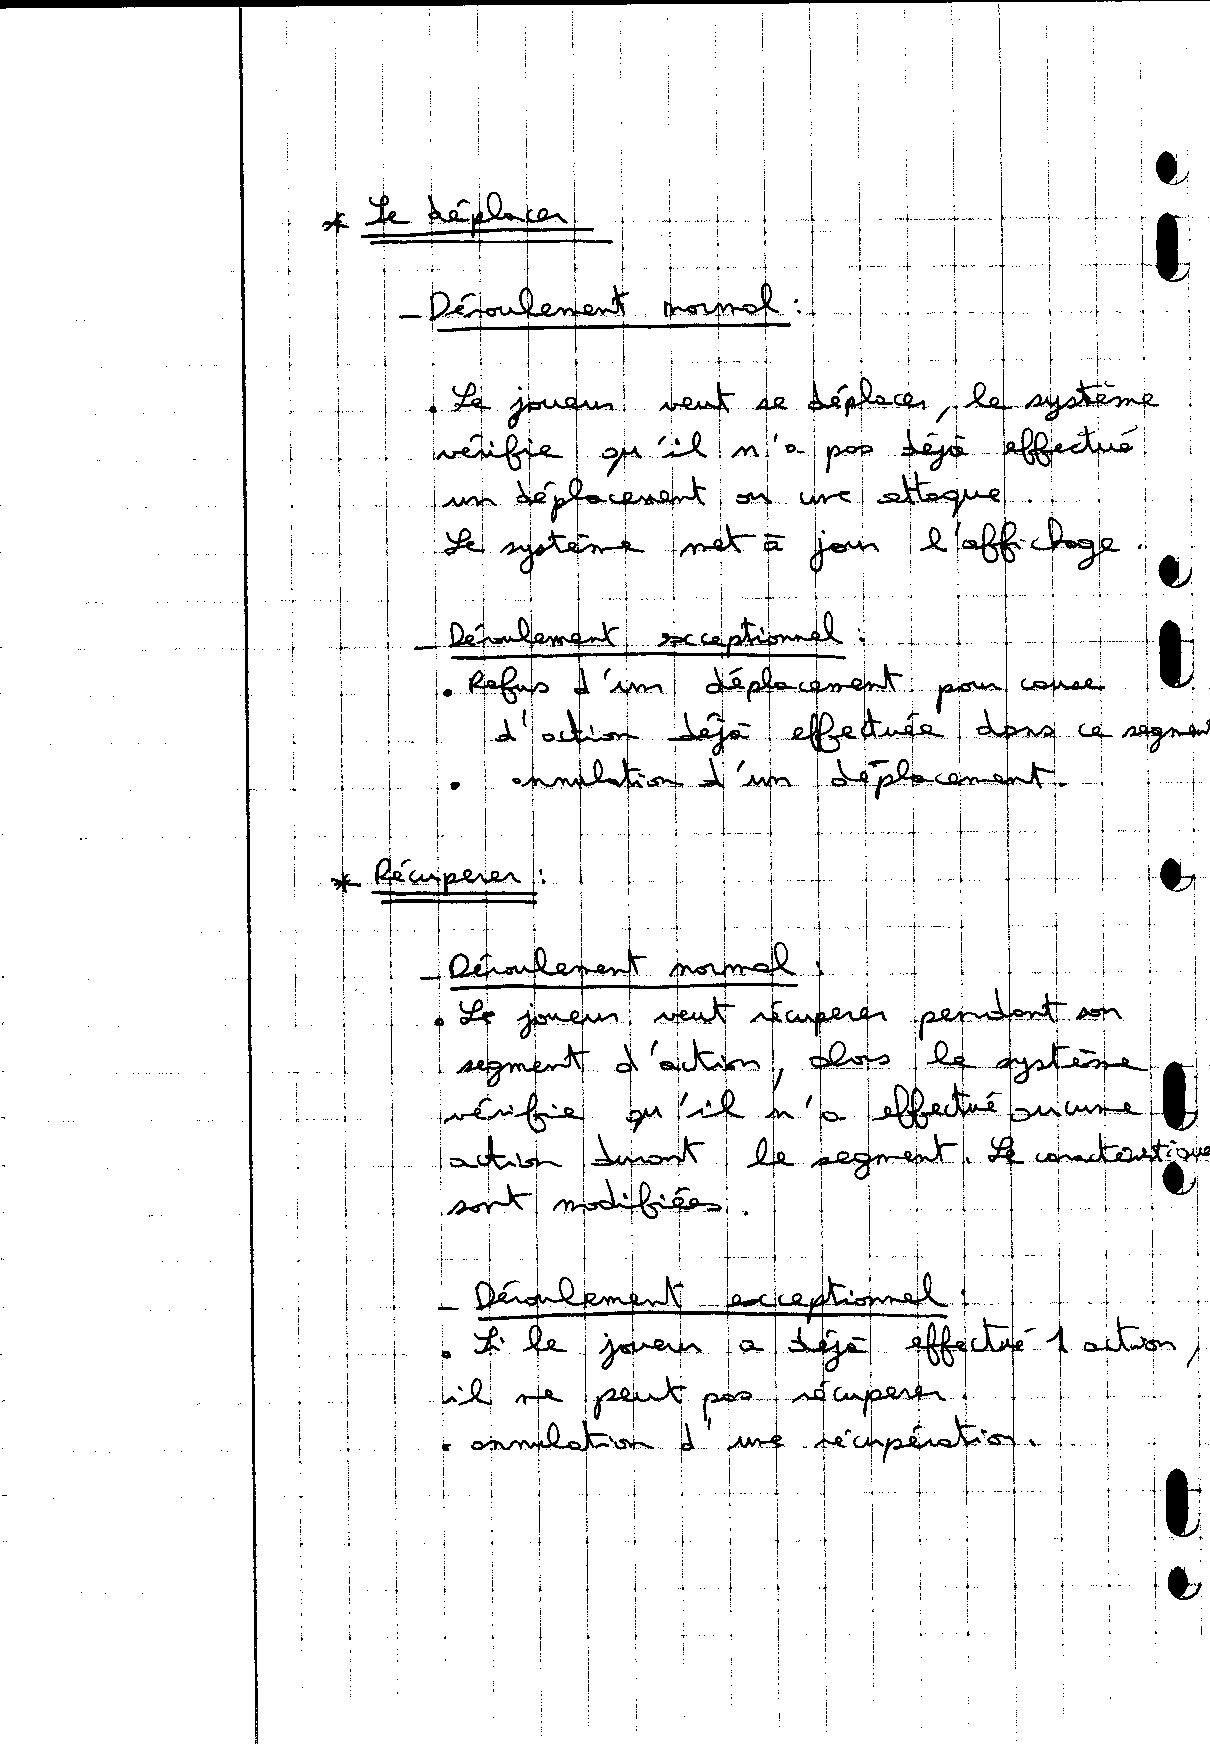 * Se déplacer
- Déroulement normal :
. Le joueur veut se déplacer, le système
vérifie qu'il n'a pas déjà effectué
un déplacement ou une attaque.
Le système met à jour l'affichage.
- Déroulement exceptionnel :
. Refus d'un déplacement pour cause
d'action déjà effectuée dans ce segmen
. annulation d'un déplacement.
* Récuperer :
- Déroulement normal :
. Le joueur veut récuperer pendant son
segment d'action, alors le système
vérifie qu'il n'a effectué aucune
action durant le segment. Le caracteristique
sont modifiées.
- Déroulement exceptionnel :
. Si le joueur a déjà effectué 1 action,
il ne peut pas récuperer.
. annulation d'une récupération.